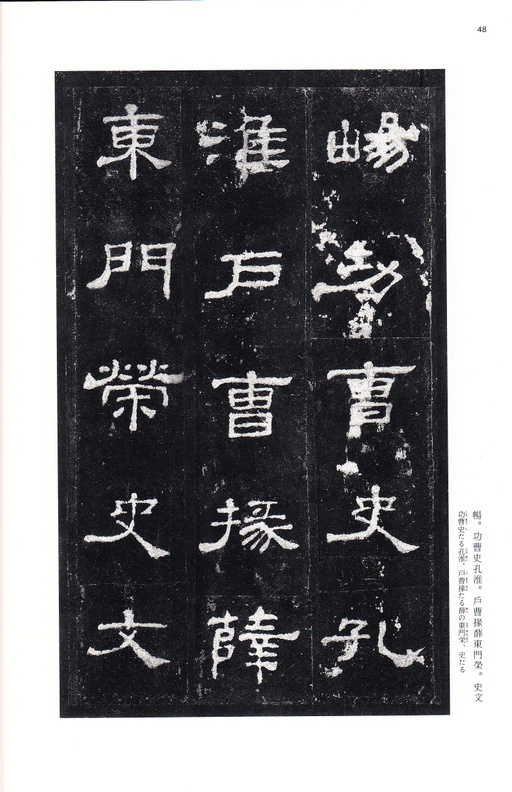 48
暢功曹史孔
淮戶曹掾薛
東門榮史文
暢。功曹史孔淮。戶曹掾薛東門榮。史文
功曹史たる孔淮、戶曹掾たる薛の東門榮、史たる